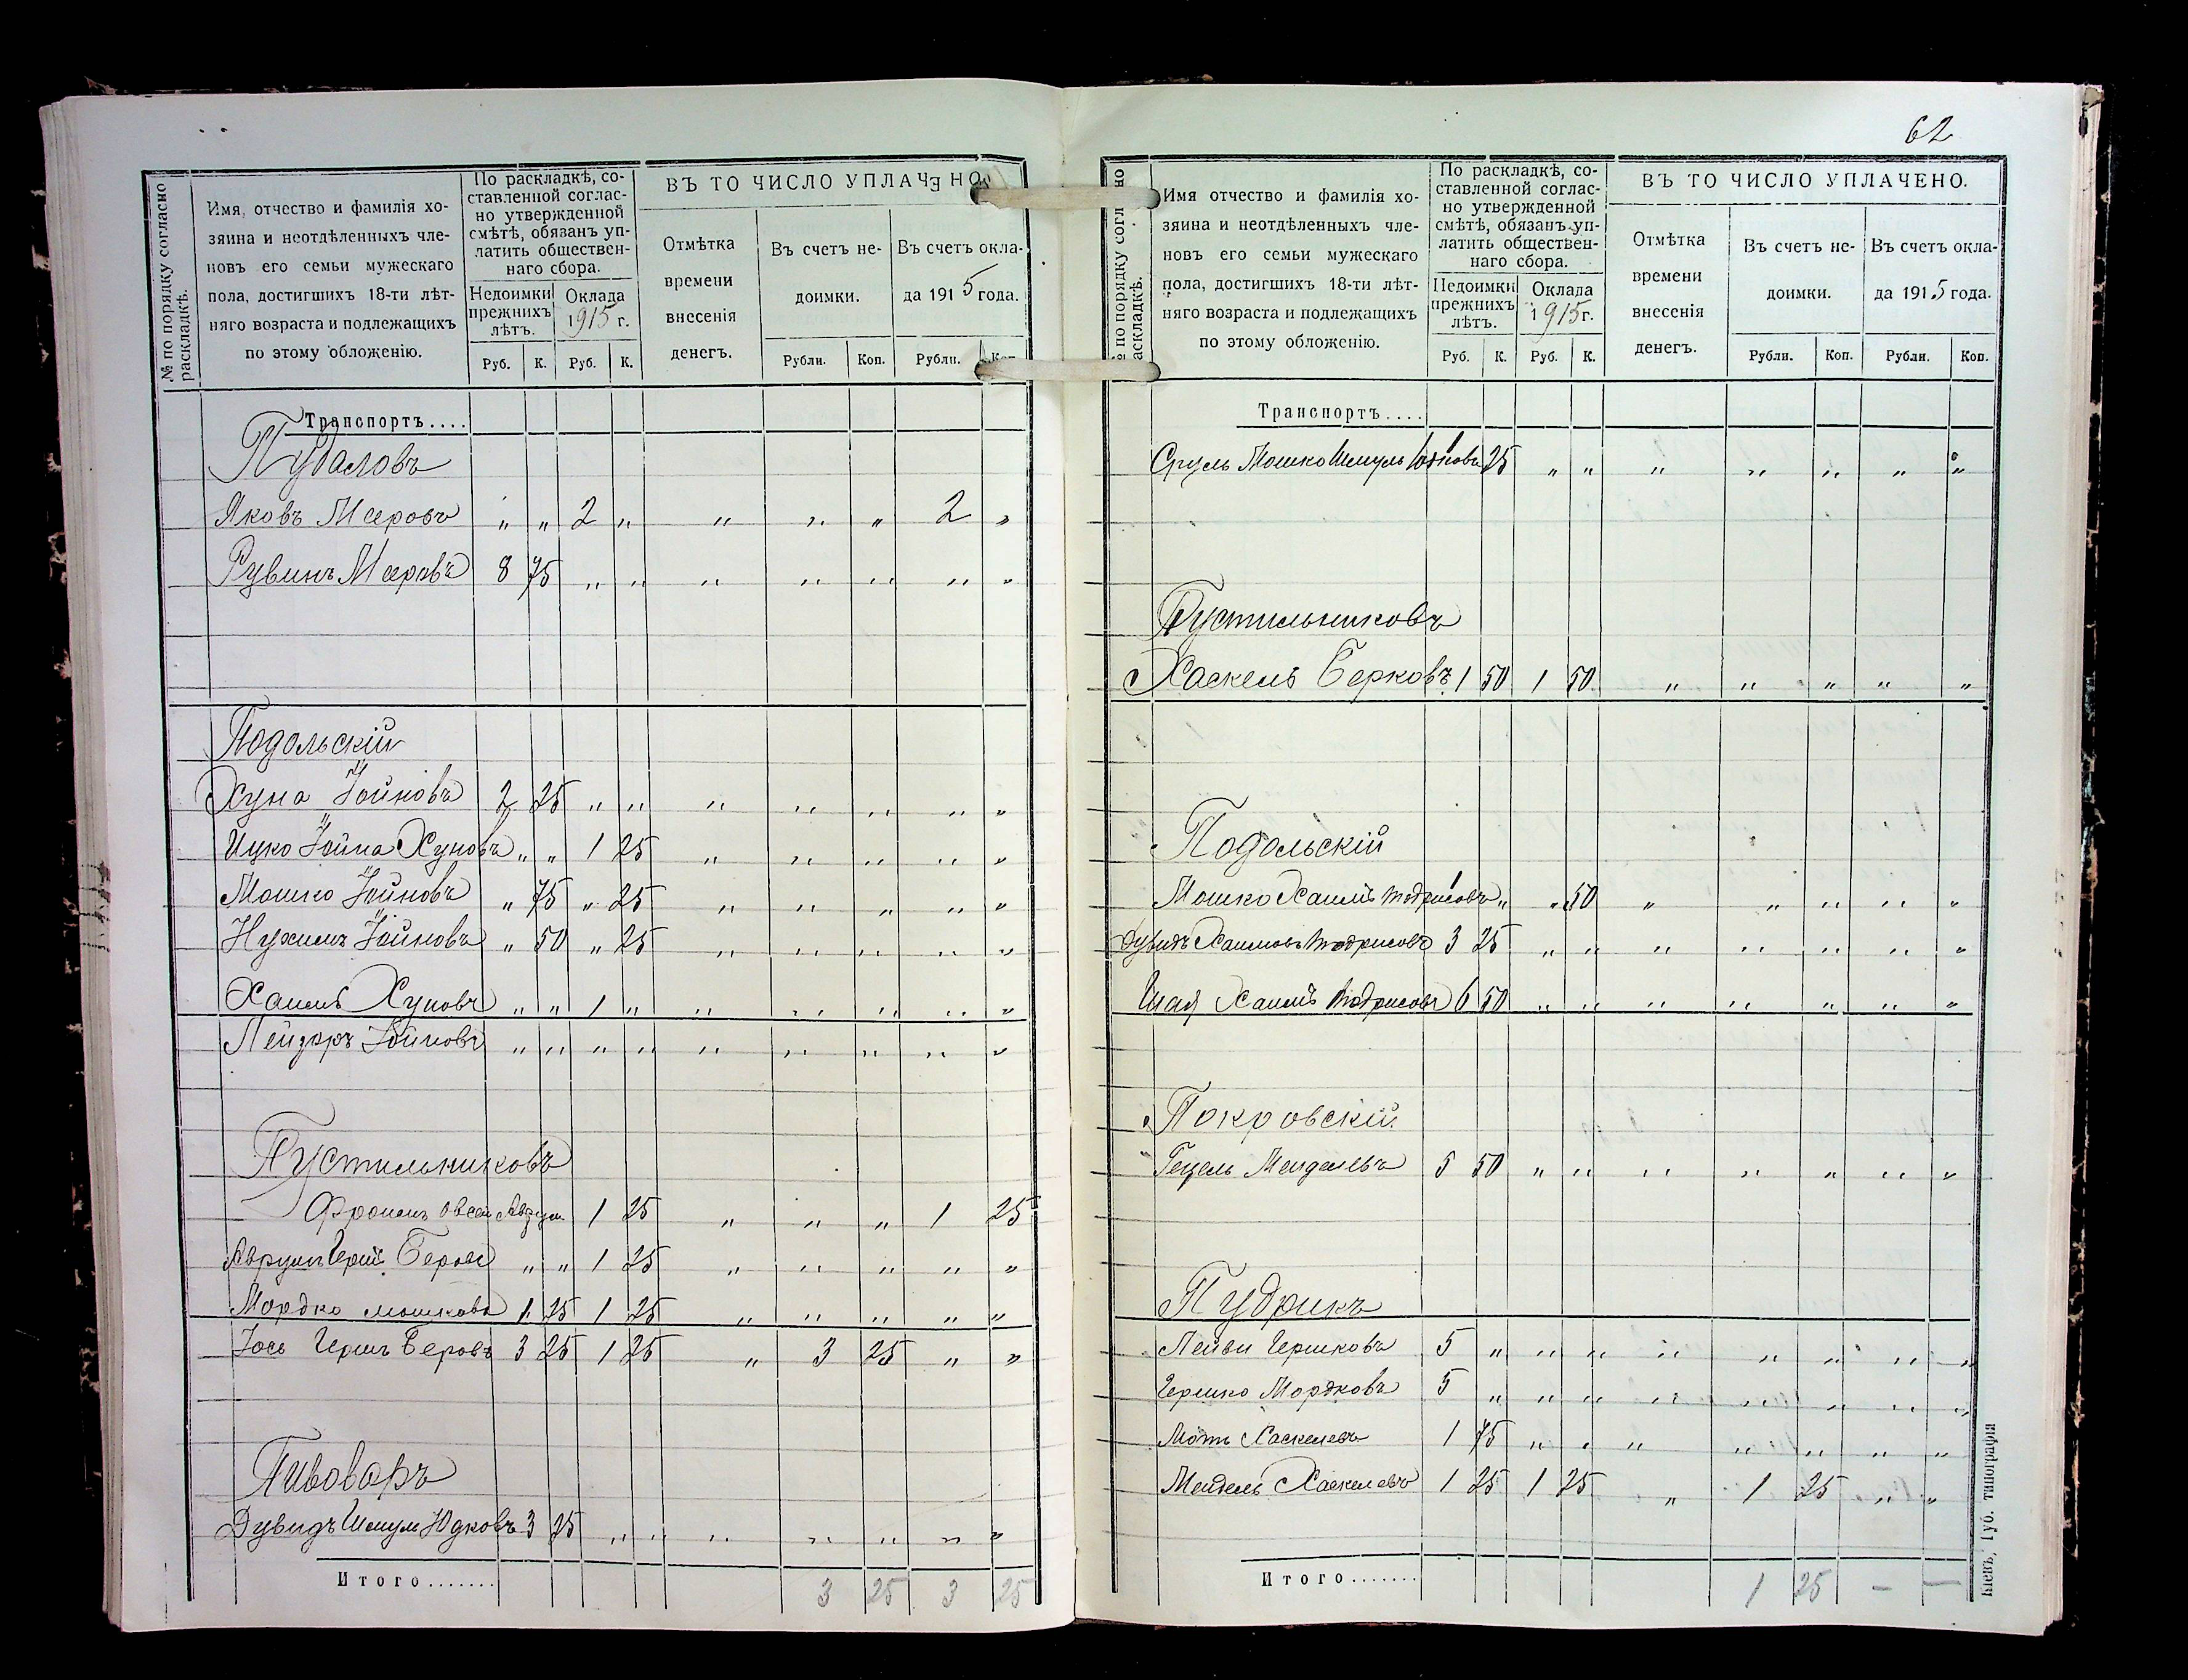 62
№ по порядку согласно раскладкѣ.
Имя, отчество и фамилія хо-
зяина и неотдѣленныхъ чле-
новъ его семьи мужескаго
пола, достигшихъ 18-ти лѣт-
няго возраста и подлежащихъ
по этому обложенію.
По раскладкѣ, со-
ставленной соглас-
но утвержденной
смѣтѣ, обязанъ уп-
латить обществен-
наго сбора.
Недоимки
прежнихъ
лѣтъ.
Оклада
1915 г.
Руб. К. Руб. К.
ВЪ ТО ЧИСЛО УПЛАЧЕНО.
Отмѣтка
времени
внесенія
денегъ.
Въ счетъ не-
доимки.
Въ счетъ окла-
да 1915 года.
Рубли. Коп. Рубли. Коп.
Транспортъ....
Пудаловъ
Яковъ Мееровъ " " 2 " " " " 2 "
Рувинъ Мееровъ 8 75 " " " " " " "
Подольскій
Хуна Іойновъ 2 25 " " " " " " "
Ицко Іойна Хуновъ " " 1 25 " " " " "
Мошко Іойновъ " 75 " 25 " " " " "
Нухимъ Іойновъ " 50 " 25 " " " " "
Хаимъ Хуновъ " " 1 " " " " " "
Лейзоръ Іойновъ " " " " " " " " "
Пустильниковъ
Фроимъ Овсей Аврум 1 25 " " " 1 25
Аврумъ Герш Беров " " 1 25 " " " " "
Мордко Мошковъ 1 25 1 25 " " " " "
Іось Герш Беровъ 3 25 1 25 " 3 25 " "
Пивоваръ
Дувидъ Шмул Юдковъ 3 75 " " " " " " "
Итого....... 3 25 3 25
№ по порядку согласно раскладкѣ.
Имя отчество и фамилія хо-
зяина и неотдѣленныхъ чле-
новъ его семьи мужескаго
пола, достигшихъ 18-ти лѣт-
няго возраста и подлежащихъ
по этому обложенію.
По раскладкѣ, со-
ставленной соглас-
но утвержденной
смѣтѣ, обязанъ уп-
латить обществен-
наго сбора.
Недоимки
прежнихъ
лѣтъ.
Оклада
1915 г.
Руб. К. Руб. К.
ВЪ ТО ЧИСЛО УПЛАЧЕНО.
Отмѣтка
времени
внесенія
денегъ.
Въ счетъ не-
доимки.
Въ счетъ окла-
да 1915 года.
Рубли. Коп. Рубли. Коп.
Транспортъ....
Сруль Мошко Шмуль 25 " " " " " " "
Пустильниковъ
Хаскель Берковъ 1 50 1 50 " " " " "
Подольскій
Мошко Хаимъ Тодрисовъ " " 50 " " " " "
Дувидъ Хаимовъ Тодрисовъ 3 25 " " " " " " "
Шая Хаимъ Тодрисовъ 6 50 " " " " " " "
Покровскій
Гецель Менделевъ 5 50 " " " " " " "
Пудрикъ
Лейви Гершковъ 5 " " " " " " " "
Гершко Мордковъ 5 " " " " " " " "
Моть Хаскелевъ 1 75 " " " " " " "
Мендель Хаскелевъ 1 25 1 25 " 1 25 " "
Итого....... 1 25 — —
Кіевъ, Губ. типографія